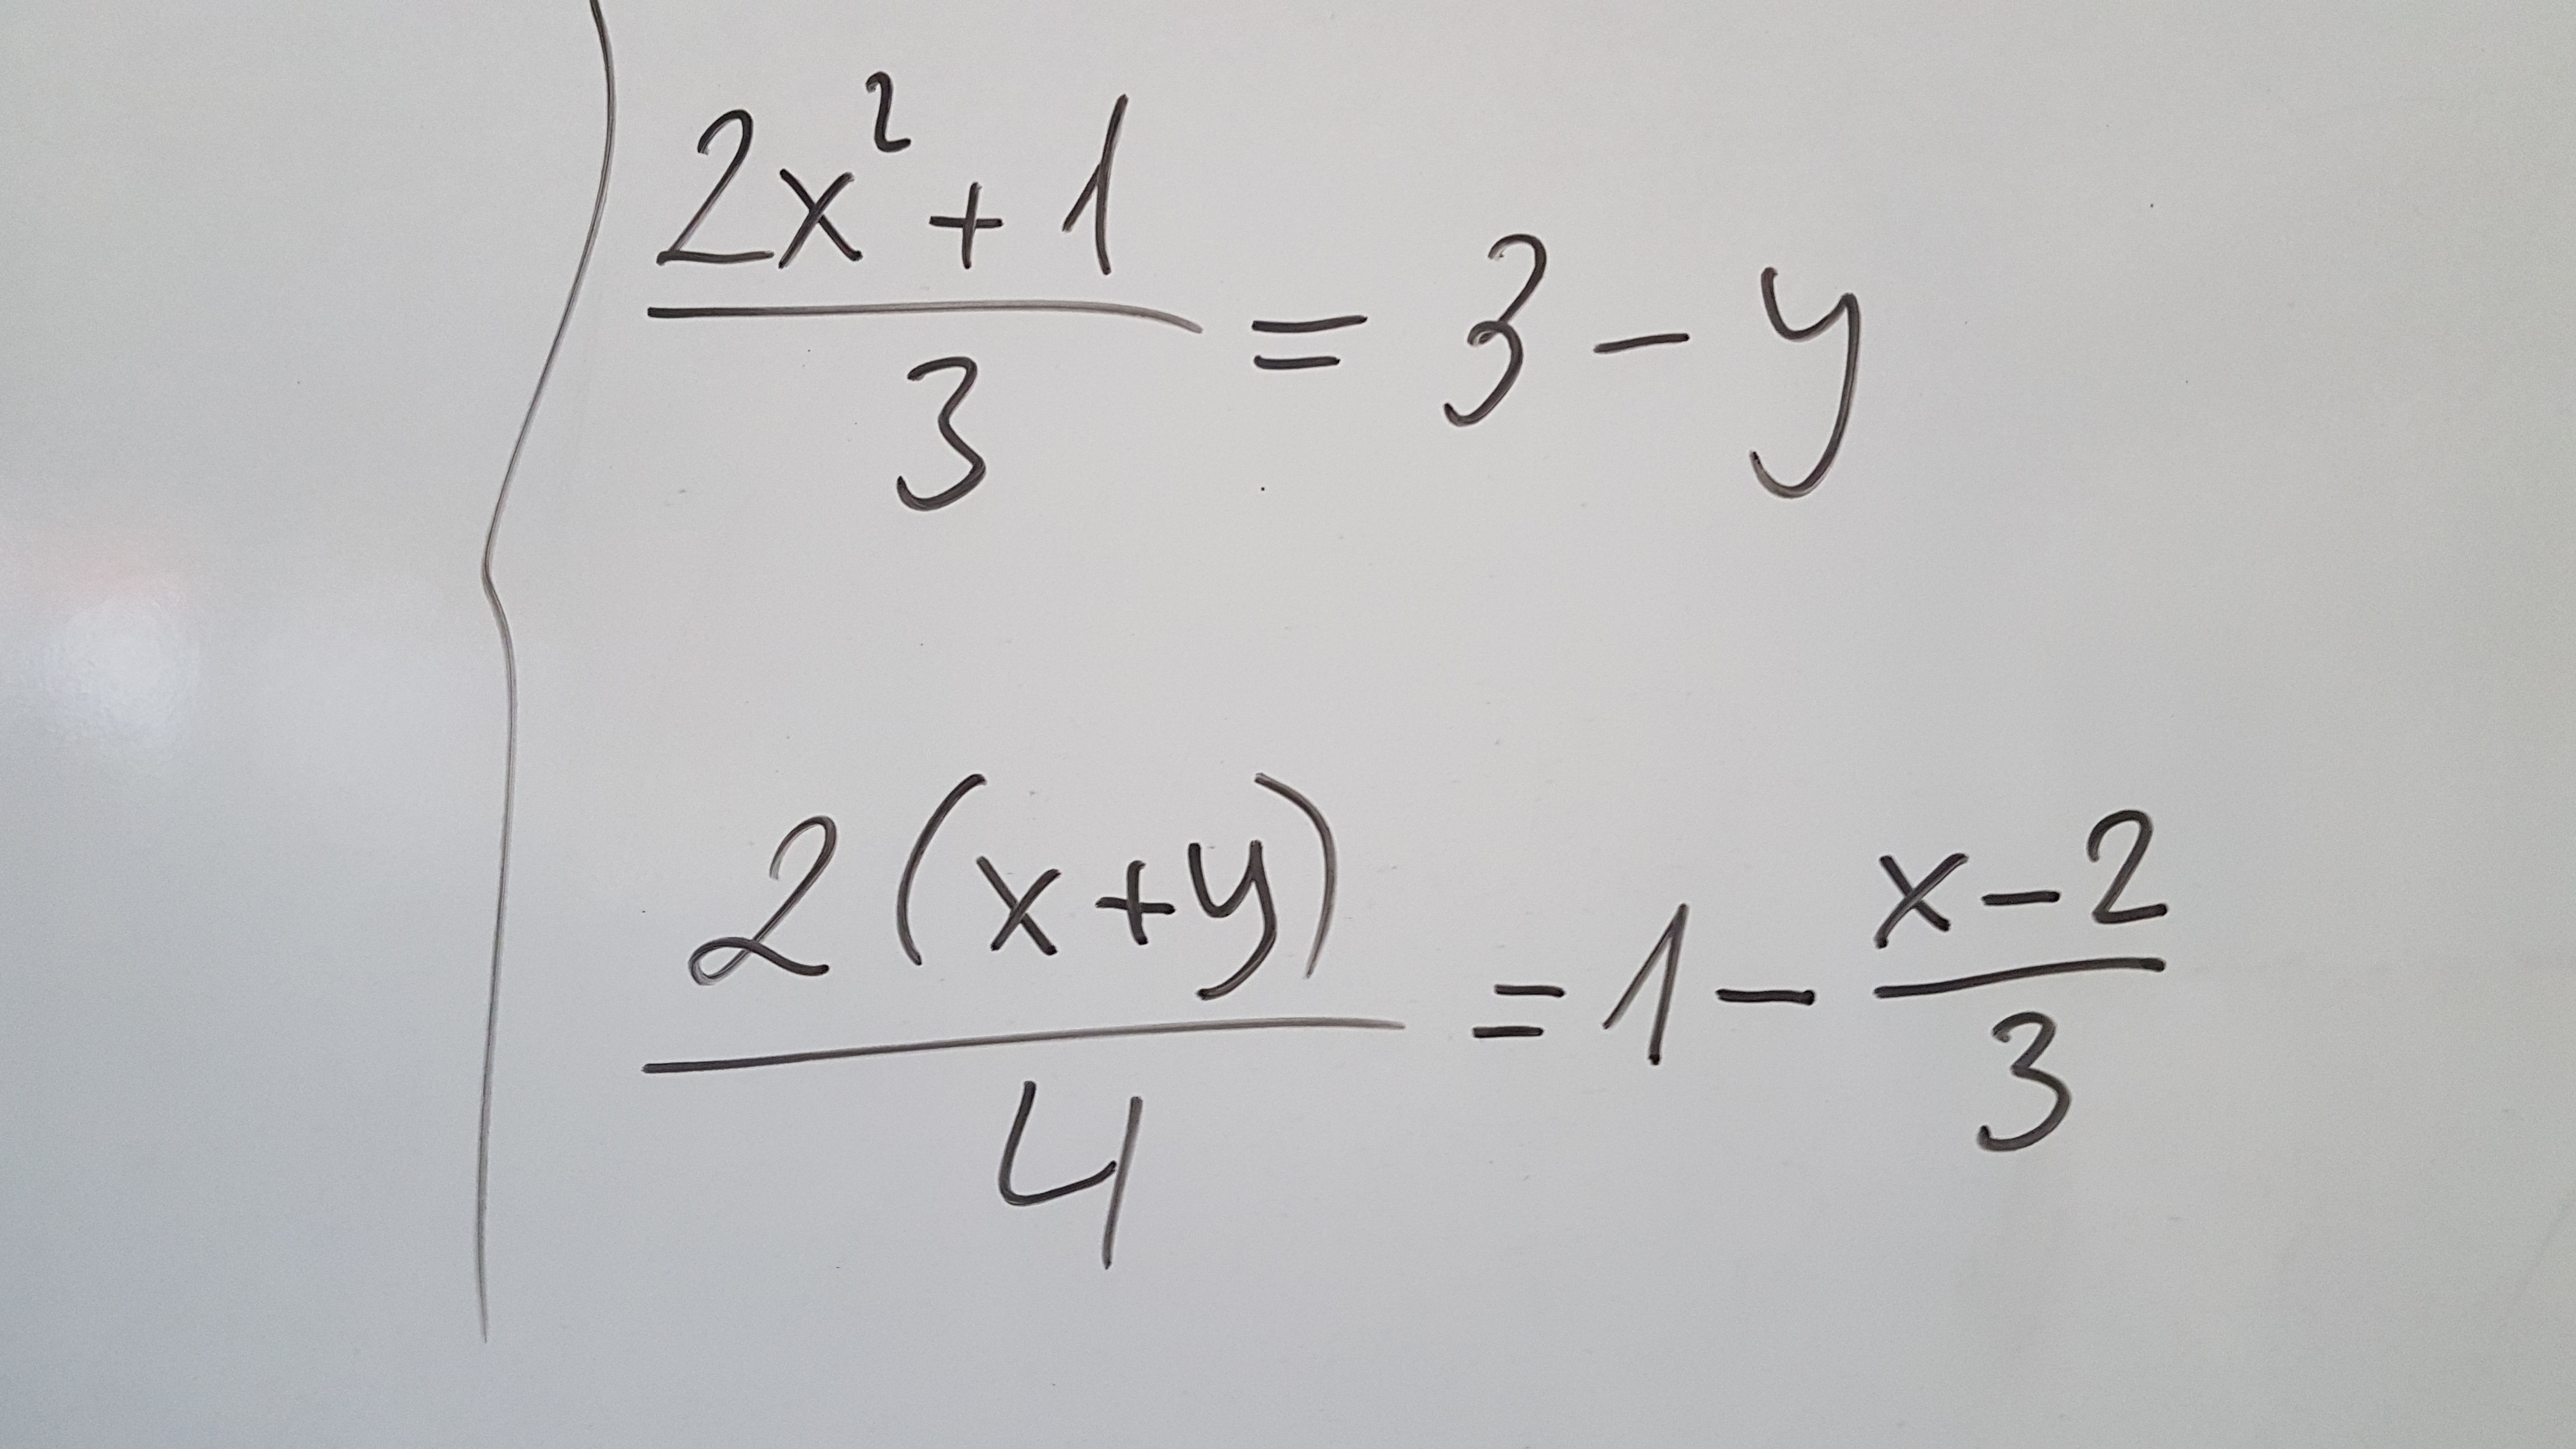 (2x²+1)/3 = 3-y
2(x+y)/4 = 1-(x-2)/3